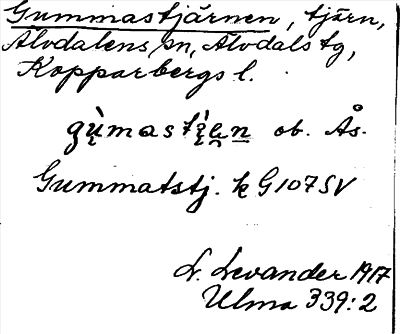 Gummastjärnen, tjärn,
Älvdalens sn, Älvdals tg,
Kopparbergs l.
ob. Ås.
Gummatstj. k G107SV
L. Levander 1917
Ulma 339:2